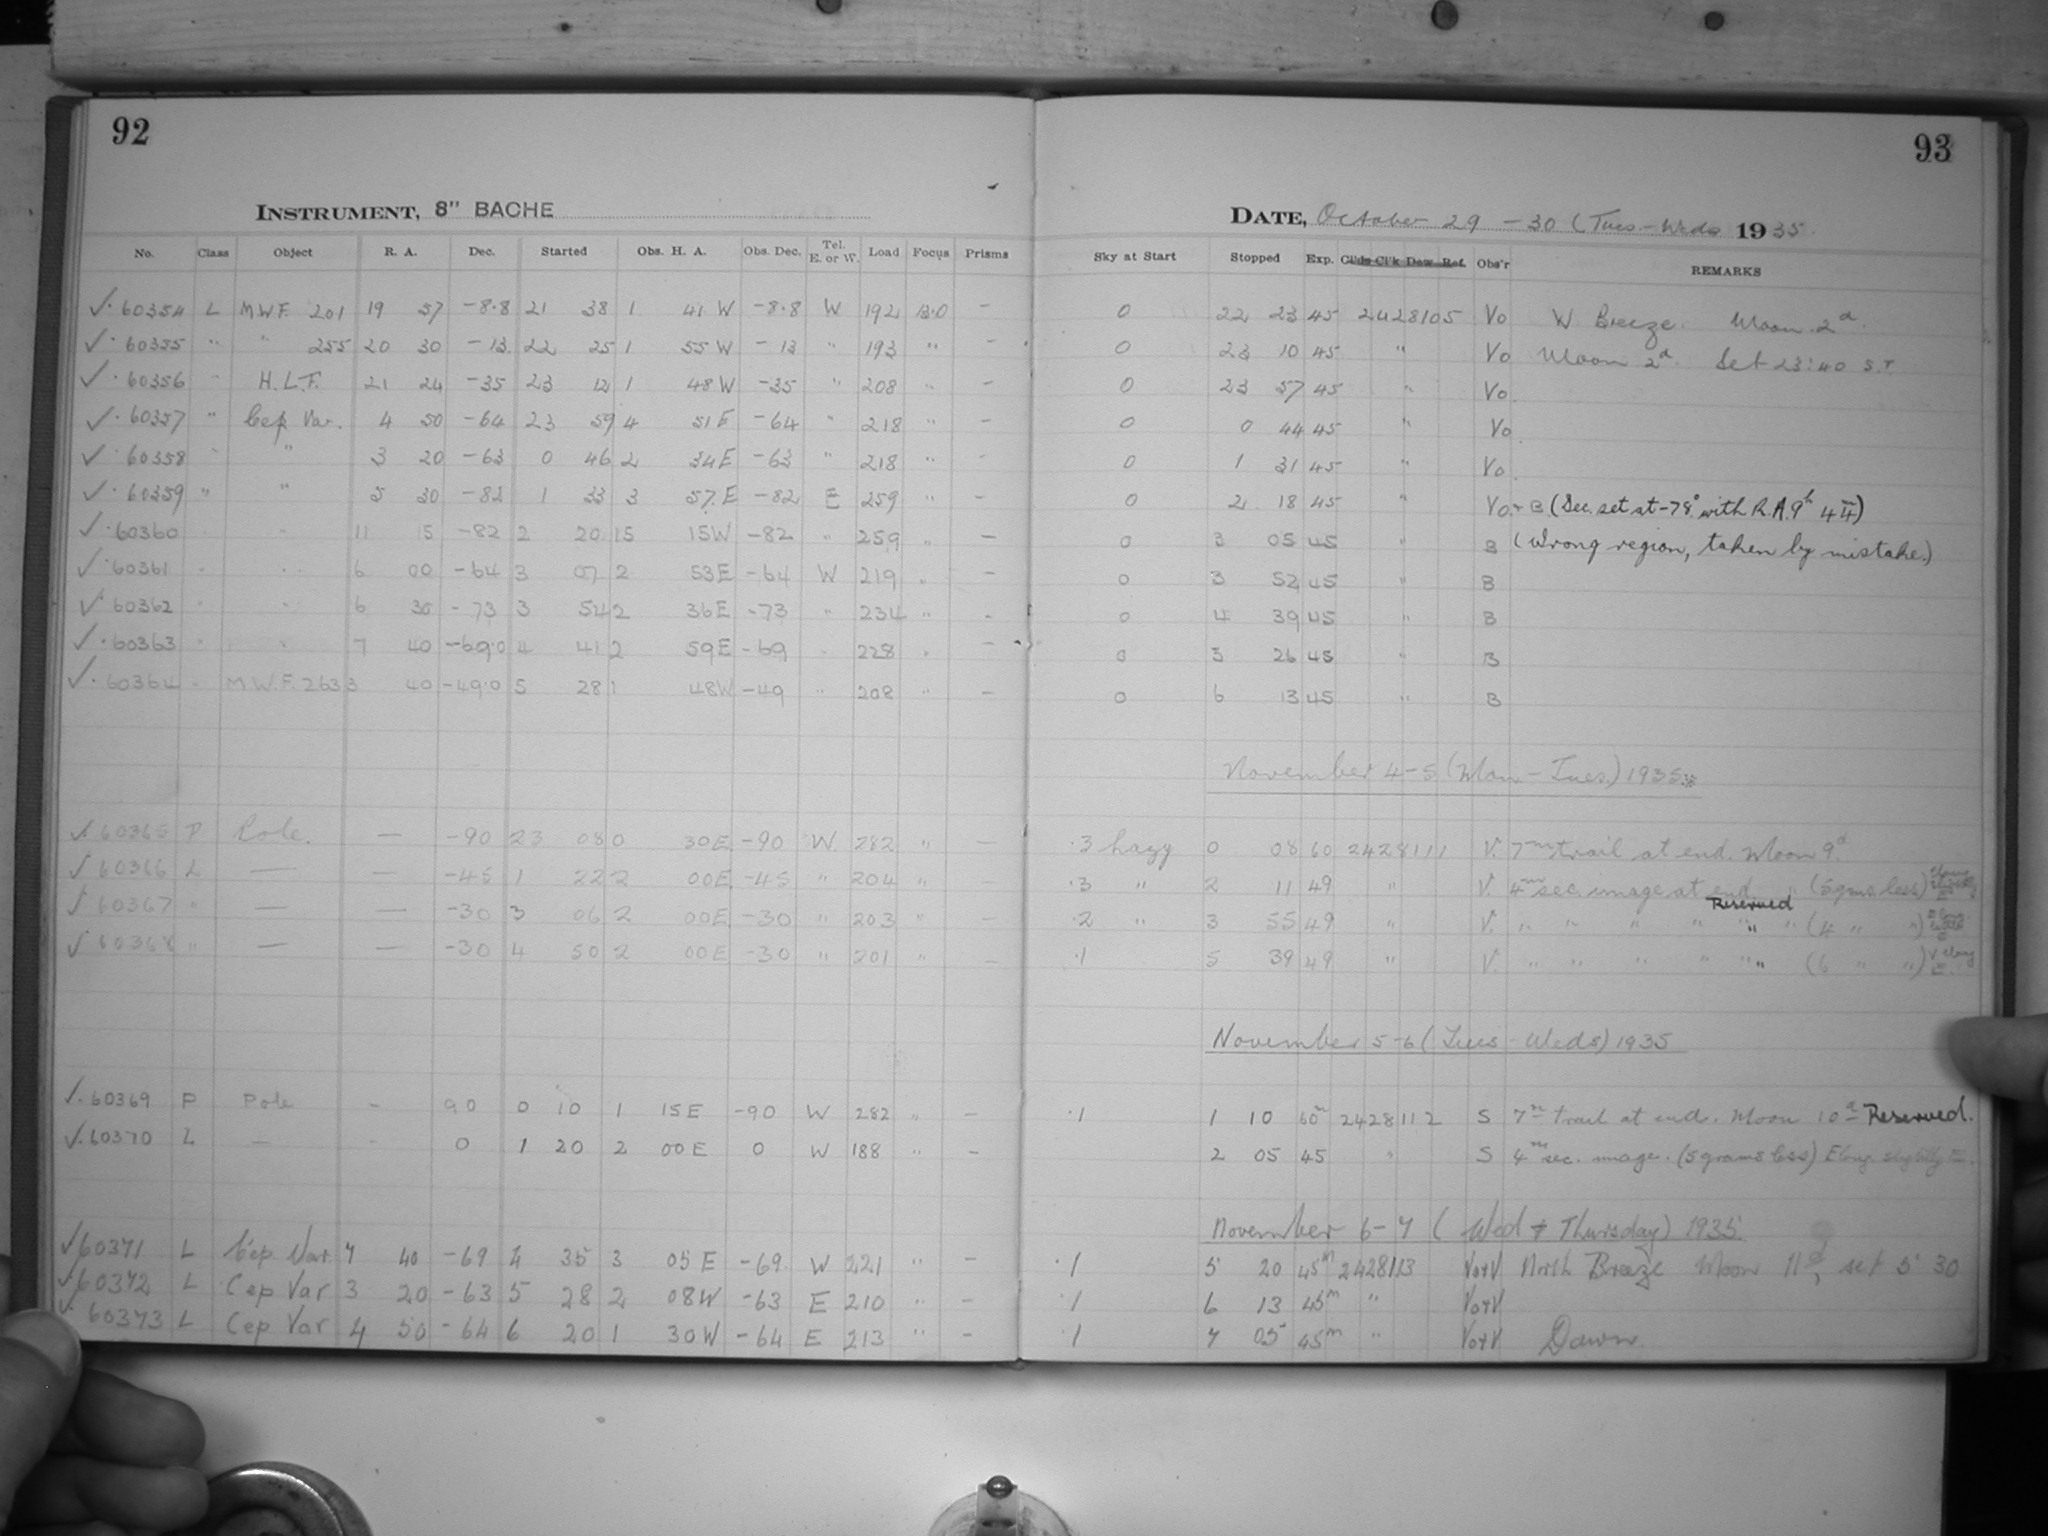 92
INSTRUMENT, 8" BACHE
No. Class Object R. A. Dec. Started Obs. H. A. Obs. Dec. Tel. E. or W. Load Focus Prisms
✓· 60354 L M.W.F. 201 19 57 -8.8 21 38 1 41 W -8.8 W 192 13.0 -
✓· 60355 " " 255 20 30 -13 22 25 1 55 W -13 " 193 " -
✓· 60356 " H.L.F. 21 24 -35 23 12 1 48 W -35 " 208 " -
✓· 60357 " Cep Var. 4 50 -64 23 59 4 51 E -64 " 218 " -
✓· 60358 " " 3 20 -63 0 46 2 34 E -63 " 218 " -
✓· 60359 " " 5 30 -82 1 33 3 57 E -82 E 259 " -
✓· 60360 " " 11 15 -82 2 20 15 15 W -82 " 259 " -
✓· 60361 " " 6 00 -64 3 07 2 53 E -64 W 219 " -
✓· 60362 " " 6 30 -73 3 54 2 36 E -73 " 234 " -
✓· 60363 " " 7 40 -69.0 4 41 2 59 E -69 " 228 " -
✓· 60364 " M.W.F. 263 3 40 -49.0 5 28 1 48 W -49 " 208 " -
✓· 60365 P Pole. — -90 23 08 0 30 E -90 W 282 " -
✓ 60366 L — -45 1 22 2 00 E -45 " 204 " -
✓ 60367 " — — -30 3 06 2 00 E -30 " 203 " -
✓ 60368 " — — -30 4 50 2 00 E -30 " 201 " -
✓· 60369 P Pole - 90 0 10 1 15 E -90 W 282 " -
✓· 60370 L - - 0 1 20 2 00 E 0 W 188 " -
✓ 60371 L Cep Var 7 40 -69 4 35 3 05 E -69 W 221 " -
✓ 60372 L Cep Var 3 20 -63 5 28 2 08 W -63 E 210 " -
✓ 60373 L Cep Var 4 50 -64 6 20 1 30 W -64 E 213 " -
93
DATE, October 29 - 30 (Tues - Weds 1935.
Sky at Start Stopped Exp. Cl'ds Cl'k Dew Ref. Obs'r REMARKS
0 22 23 45 2428105 Vo W Breeze. Moon 2d.
0 23 10 45 " Vo Moon 2d. Set 23:40 S.T.
0 23 57 45 " Vo.
0 0 44 45 " Vo.
0 1 31 45 " Vo.
0 2 18 45 " Vo. + B (Dec. set at -78° with R.A. 9h 44m)
0 3 05 45 " B (Wrong region, taken by mistake.)
0 3 52 45 " B
0 4 39 45 " B
0 5 26 45 " B
0 6 13 45 " B
November 4-5 (Mon - Tues.) 1935
·3 hazy 0 08 60 2428111 V. 7m trail at end. Moon 9d.
·3 " 2 11 49 " V. 4m sec. image at end " (5 gms less)
·2 " 3 55 49 " V. " " " " Reserved " " (4 " ")
·1 5 39 49 " V. " " " " " " (6 " ") V elong E
November 5-6 (Tues - Weds) 1935
·1 1 10 60m 2428112 S 7m trail at end. Moon 10d Reserved.
2 05 45 " S 4m sec. image. (5 grams less) Elong. slightly E.
November 6-7 ( Wed + Thursday) 1935
·1 5 20 45m 2428113 Vo+V North Breeze Moon 11d, set 5 30
·1 6 13 45m " Vo+V
·1 7 05 45m " Vo+V Dawn.